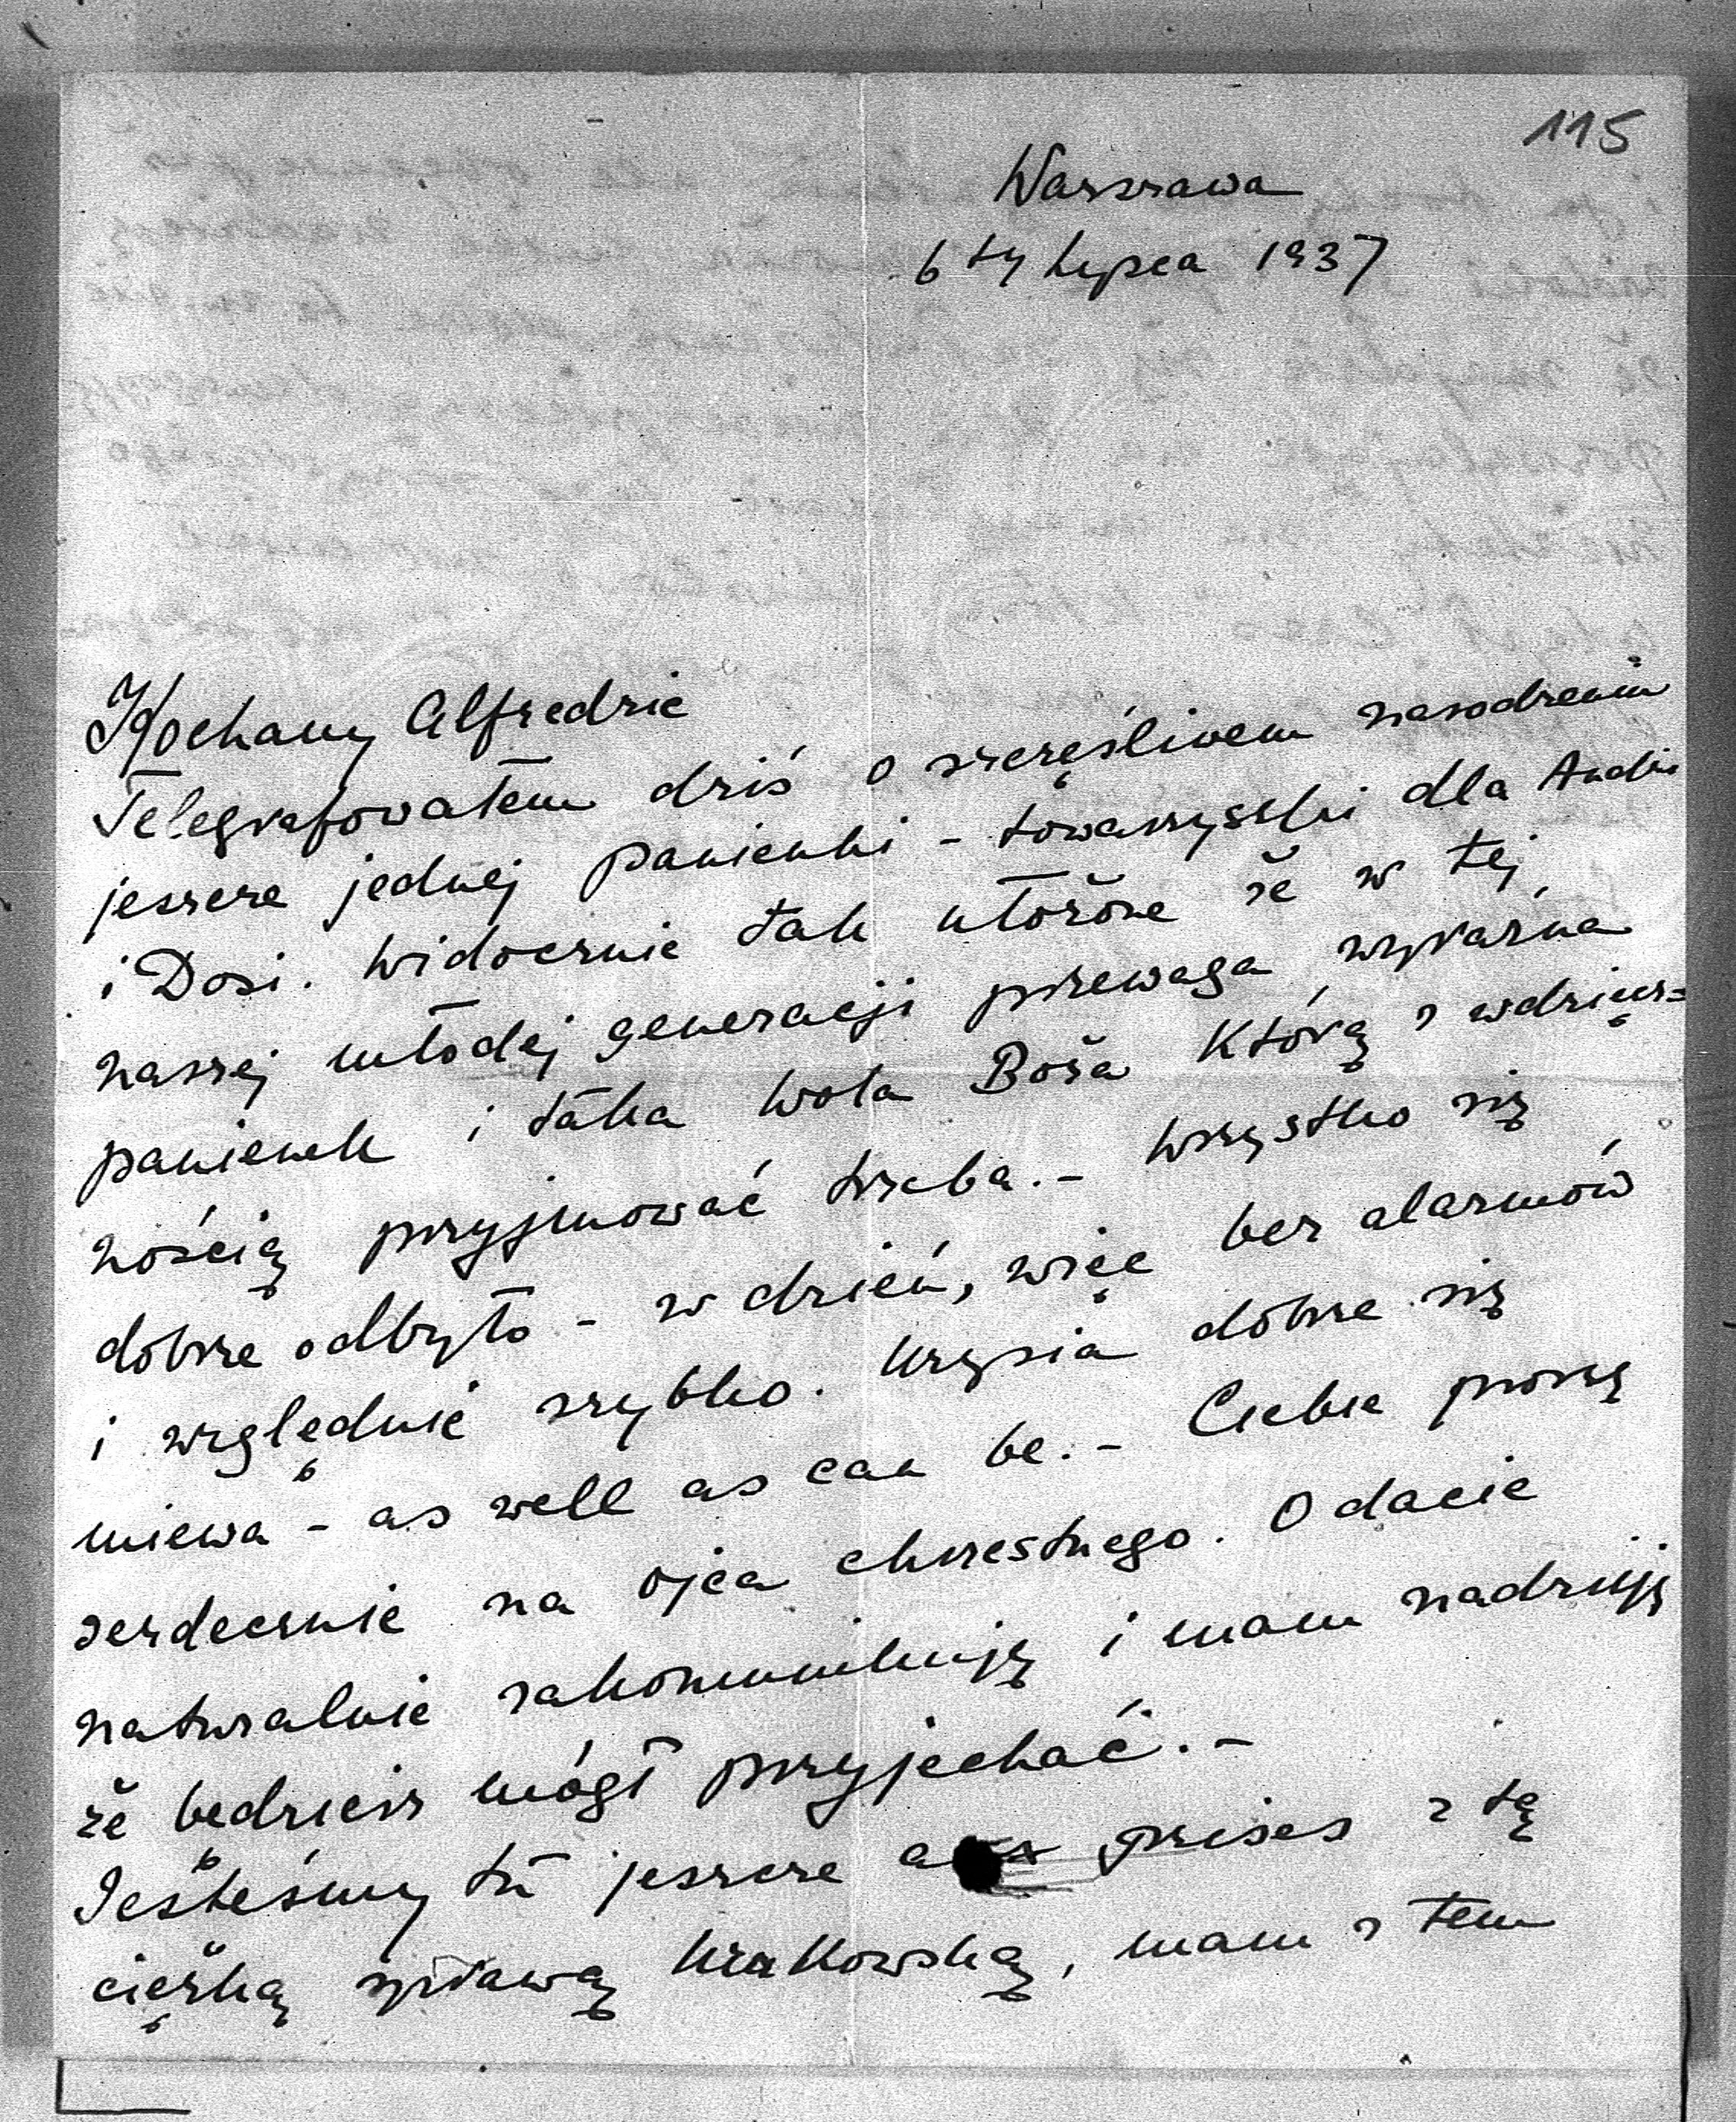 115
Warszawa
6ty Lipca 1937
Kochany Alfredzie
Telegrafowałem dziś o szczęśliwem narodzeniu
jeszcze jednej panienki - towarzyszki dla Andzi
i Dosi. Widocznie tak ułożone że w tej
naszej młodej generacji przewaga wyraźna
panienek i taka wola Boża którą z wdzięcz=
nością przyjmować trzeba. - Wszystko się
dobrze odbyło - w dzień, więc bez alarmów
i względnie szybko. Krzysia dobrze się
miewa - as well as can be. - Ciebie proszę
serdecznie na ojca chrzestnego. O dacie
naturalnie zakomunikuję i mam nadzieję
że będziesz mógł przyjechać. -
Jesteśmy tu jeszcze aux prises z tą
ciężką sprawą krakowską, mam z tem